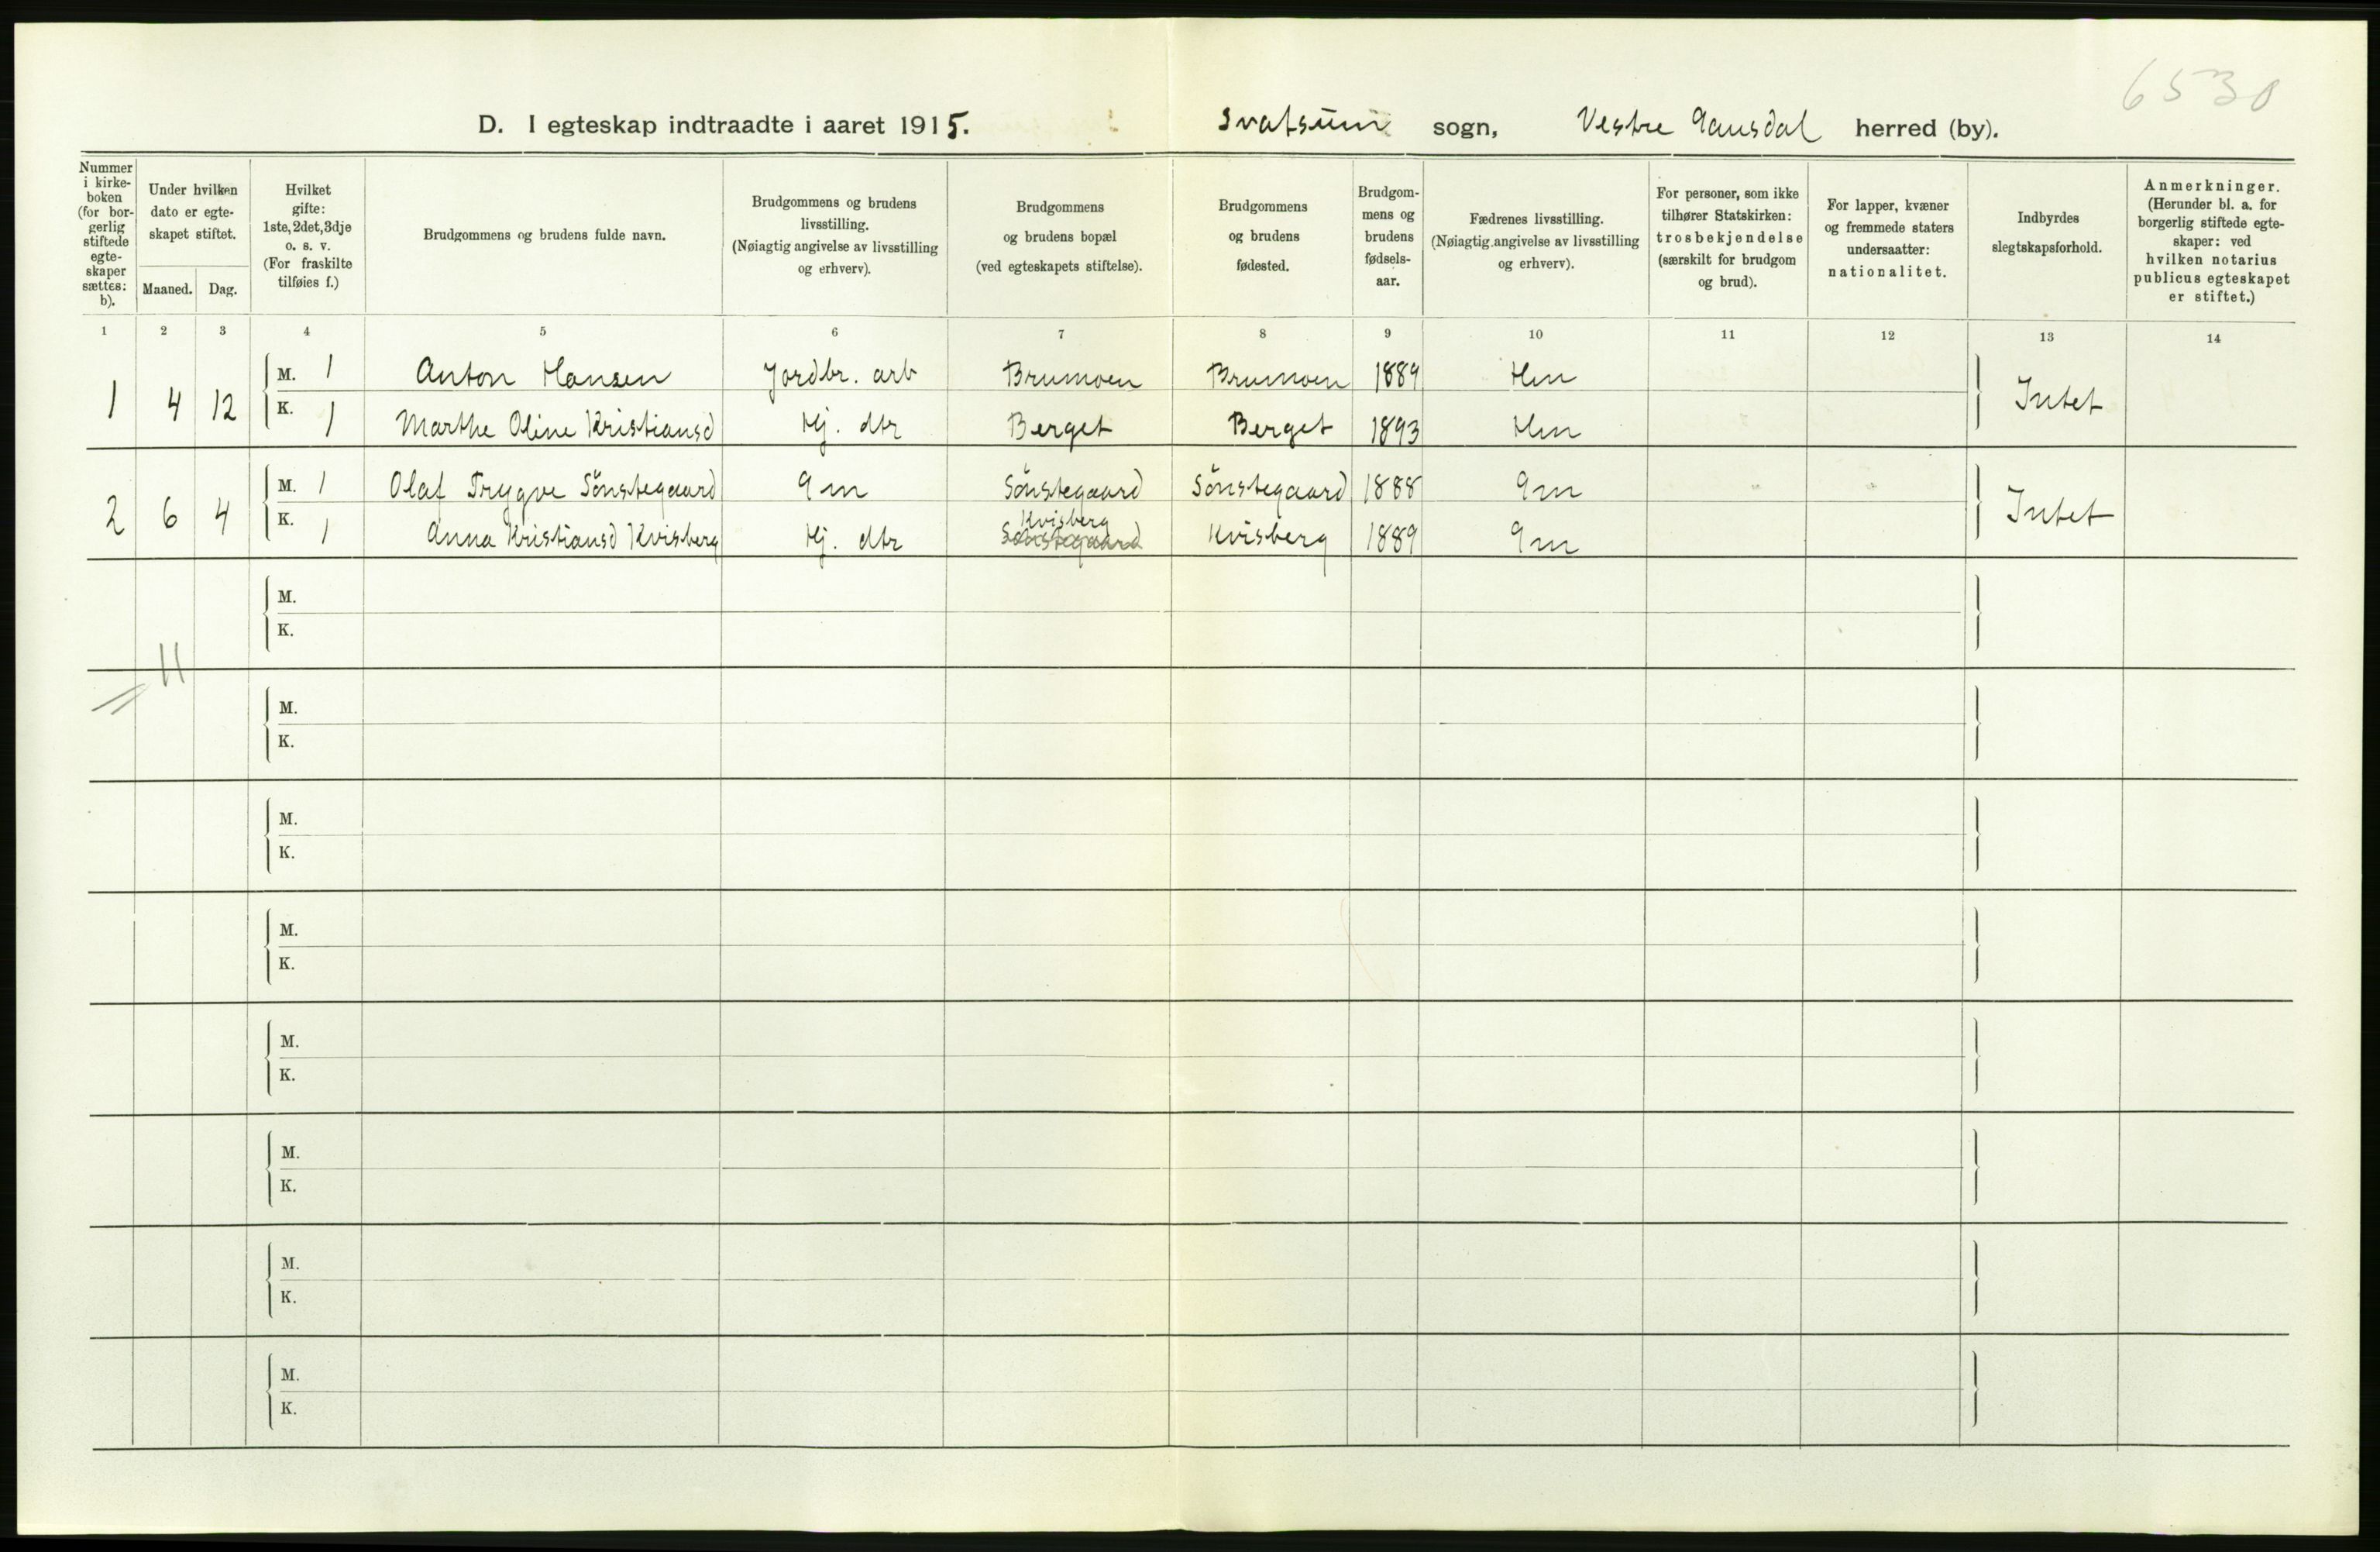 6530
D. I egteskap indtraadte i aaret 1915. Svatsum sogn, Vestre Gausdal herred (by).
Nummer i kirke-boken (for bor-gerlig stiftede egte-skaper sættes: b).
Under hvilken dato er egte-skapet stiftet.
Maaned. Dag.
Hvilket gifte: 1ste, 2det, 3dje o. s. v. (For fraskilte tilføies f.)
Brudgommens og brudens fulde navn.
Brudgommens og brudens livsstilling. (Nøiagtig angivelse av livsstilling og erhverv).
Brudgommens og brudens bopæl (ved egteskapets stiftelse).
Brudgommens og brudens fødested.
Brudgom-mens og brudens fødsels-aar.
Fædrenes livsstilling. (Nøiagtig angivelse av livsstilling og erhverv).
For personer, som ikke tilhører Statskirken: trosbekjendelse (særskilt for brudgom og brud).
For lapper, kvæner og fremmede staters undersaatter: nationalitet.
Indbyrdes slegtskapsforhold.
Anmerkninger. (Herunder bl. a. for borgerlig stiftede egte-skaper: ved hvilken notarius publicus egteskapet er stiftet.)
1 2 3 4 5 6 7 8 9 10 11 12 13 14
1 4 12 M. 1 Anton Hansen Jordbr. arb Brumoen Brumoen 1889 Hm Intet
K. 1 Marthe Oline Kristiansd Hj. dtr Berget Berget 1893 Hm
2 6 4 M. 1 Olaf Trygve Sönstegaard Gm Sönstegaard Sönstegaard 1888 Gm Intet
Kvisberg
K. 1 Anna Kristiansd Kvisberg Hj. dtr Sönstegaard Kvisberg 1889 Gm
M.
K.
M.
K.
M.
K.
M.
K.
M.
K.
M.
K.
M.
K.
M.
K.